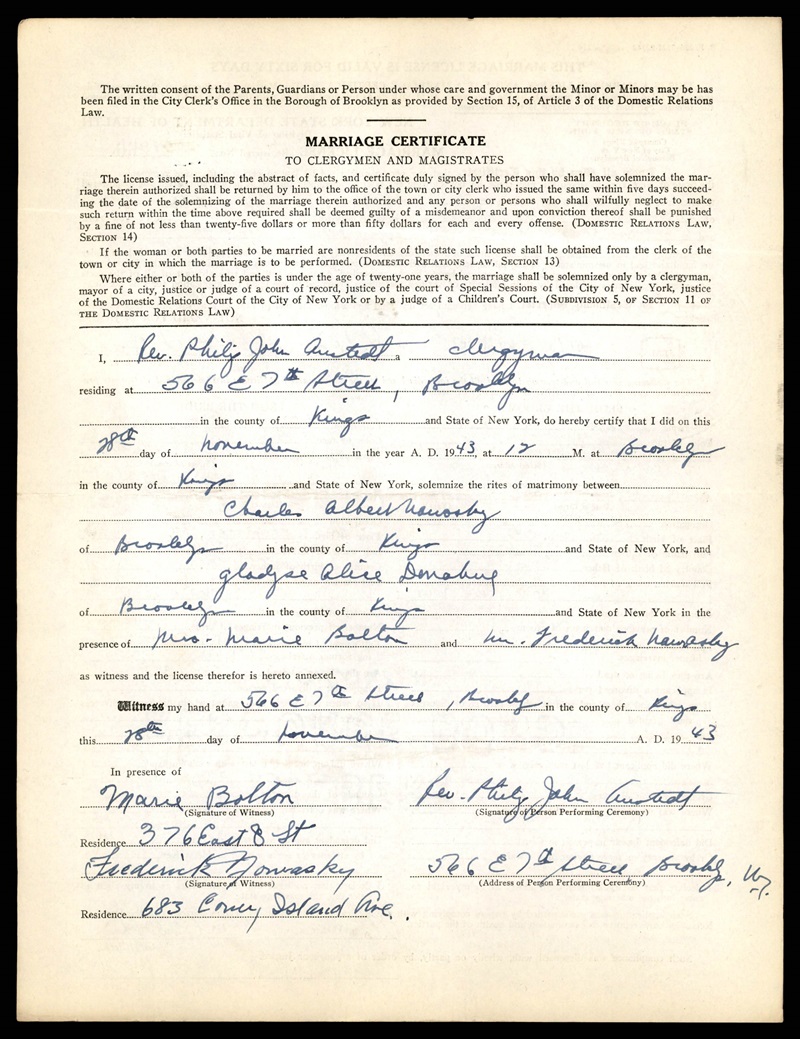 The written consent of the Parents, Guardians or Person under whose care and government the Minor or Minors may be has
been filed in the City Clerk's Office in the Borough of Brooklyn as provided by Section 15, of Article 3 of the Domestic Relations
Law.
MARRIAGE CERTIFICATE
TO CLERGYMEN AND MAGISTRATES
The license issued, including the abstract of facts, and certificate duly signed by the person who shall have solemnized the mar-
riage therein authorized shall be returned by him to the office of the town or city clerk who issued the same within five days succeed-
ing the date of the solemnizing of the marriage therein authorized and any person or persons who shall wilfully neglect to make
such return within the time above required shall be deemed guilty of a misdemeanor and upon conviction thereof shall be punished
by a fine of not less than twenty-five dollars or more than fifty dollars for each and every offense. (Domestic Relations Law,
Section 14)
If the woman or both parties to be married are nonresidents of the state such license shall be obtained from the clerk of the
town or city in which the marriage is to be performed. (Domestic Relations Law, Section 13)
Where either or both of the parties is under the age of twenty-one years, the marriage shall be solemnized only by a clergyman,
mayor of a city, justice or judge of a court of record, justice of the court of Special Sessions of the City of New York, justice
of the Domestic Relations Court of the City of New York or by a judge of a Children's Court. (Subdivision 5, of Section 11 of
the Domestic Relations Law)
I, Rev. Philip John Anstedt a clergyman
residing at 566 E 7th Street, Brooklyn
in the county of Kings and State of New York, do hereby certify that I did on this
28th day of November in the year A. D. 1943, at 12 M. at Brooklyn
in the county of Kings and State of New York, solemnize the rites of matrimony between
Charles Albert Nowasky
of Brooklyn in the county of Kings and State of New York, and
Gladyse Alice Donahue
of Brooklyn in the county of Kings and State of New York in the
presence of Mrs. Marie Bolton and Mr. Frederick Nowasky
as witness and the license therefor is hereto annexed.
Witness my hand at 566 E 7th Street, Brooklyn in the county of Kings
this 28th day of November A. D. 1943
In presence of
Marie Bolton Rev. Philip John Anstedt
(Signature of Witness) (Signature of Person Performing Ceremony)
Residence 376 East 8 St
Frederick Nowasky 566 E 7th Street Brooklyn, N.Y.
(Signature of Witness) (Address of Person Performing Ceremony)
Residence 683 Coney Island Ave.